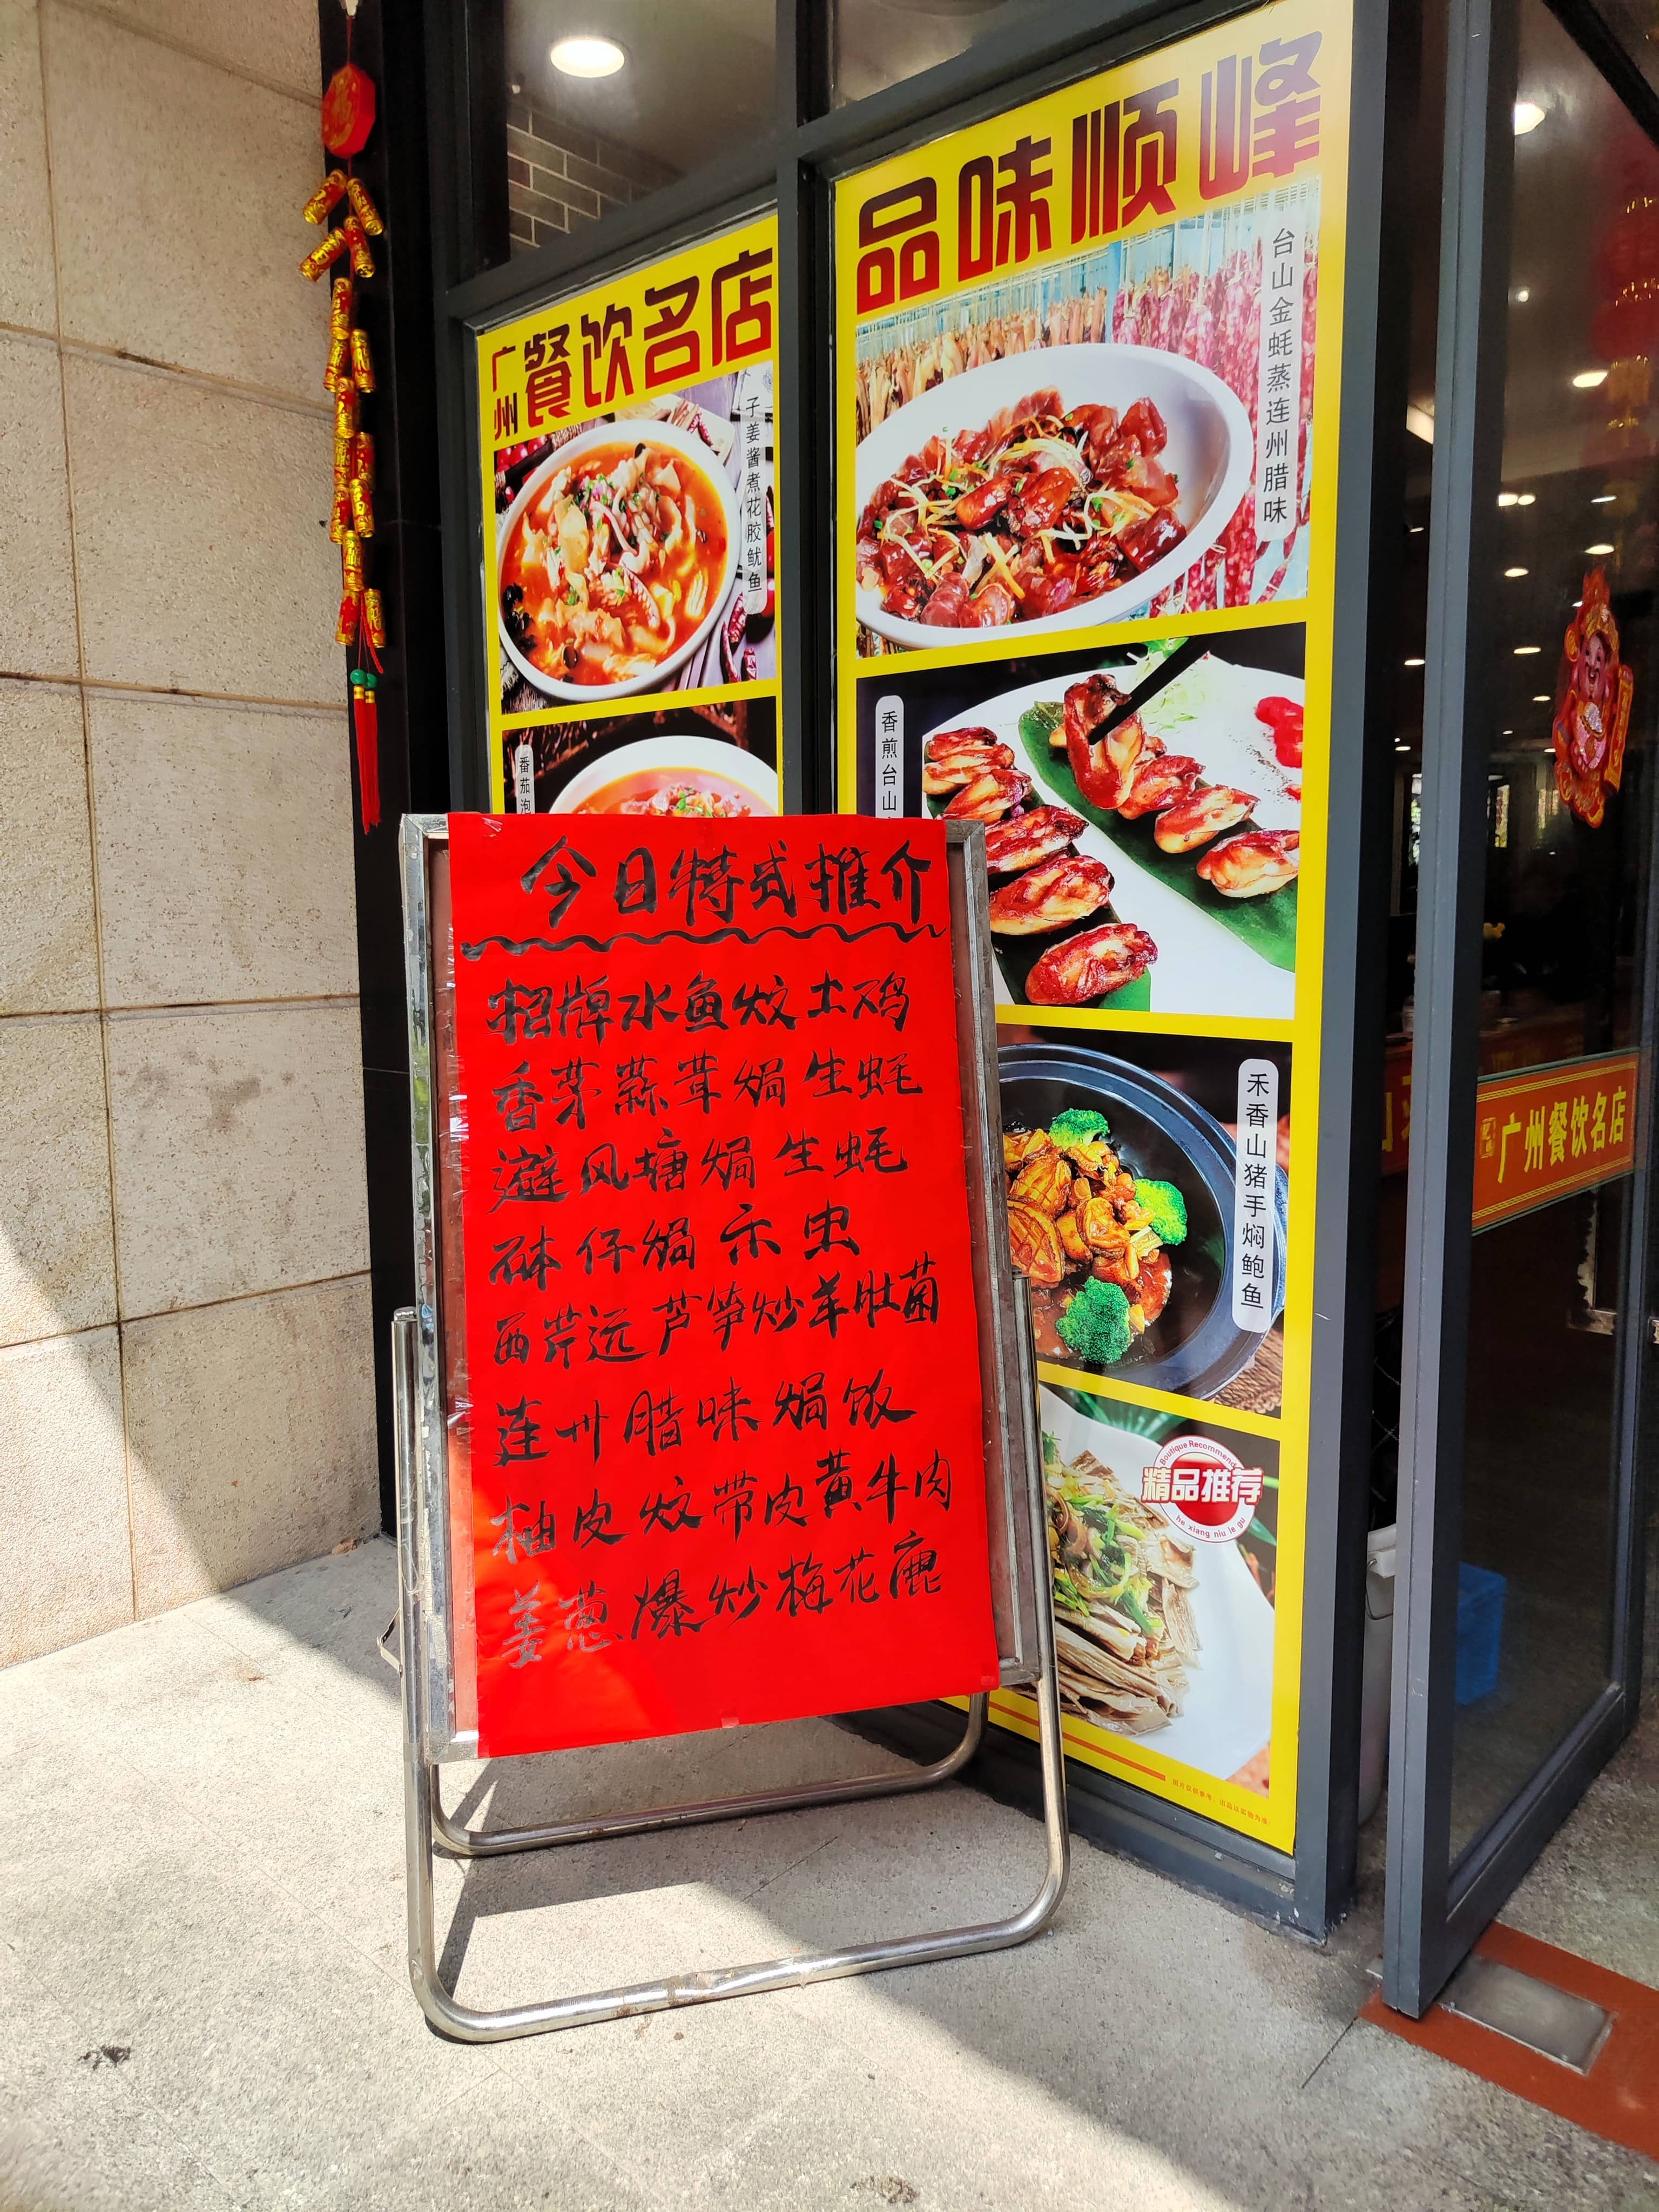 广州餐饮名店
子姜酱煮花胶鱿鱼
番茄泡
品味顺峰
台山金蚝蒸连州腊味
香煎台山
禾香山猪手焖鲍鱼
Boutique Recommend
精品推荐
he xiang niu le gu
图片仅供参考，出品以实物为准
今日特式推介
招牌水鱼炆土鸡
香茅蒜茸焗生蚝
避风塘焗生蚝
砵仔焗禾虫
西芹远芦笋炒羊肚菌
连州腊味焗饭
柚皮炆带皮黄牛肉
姜葱爆炒梅花鹿
广州餐饮名店